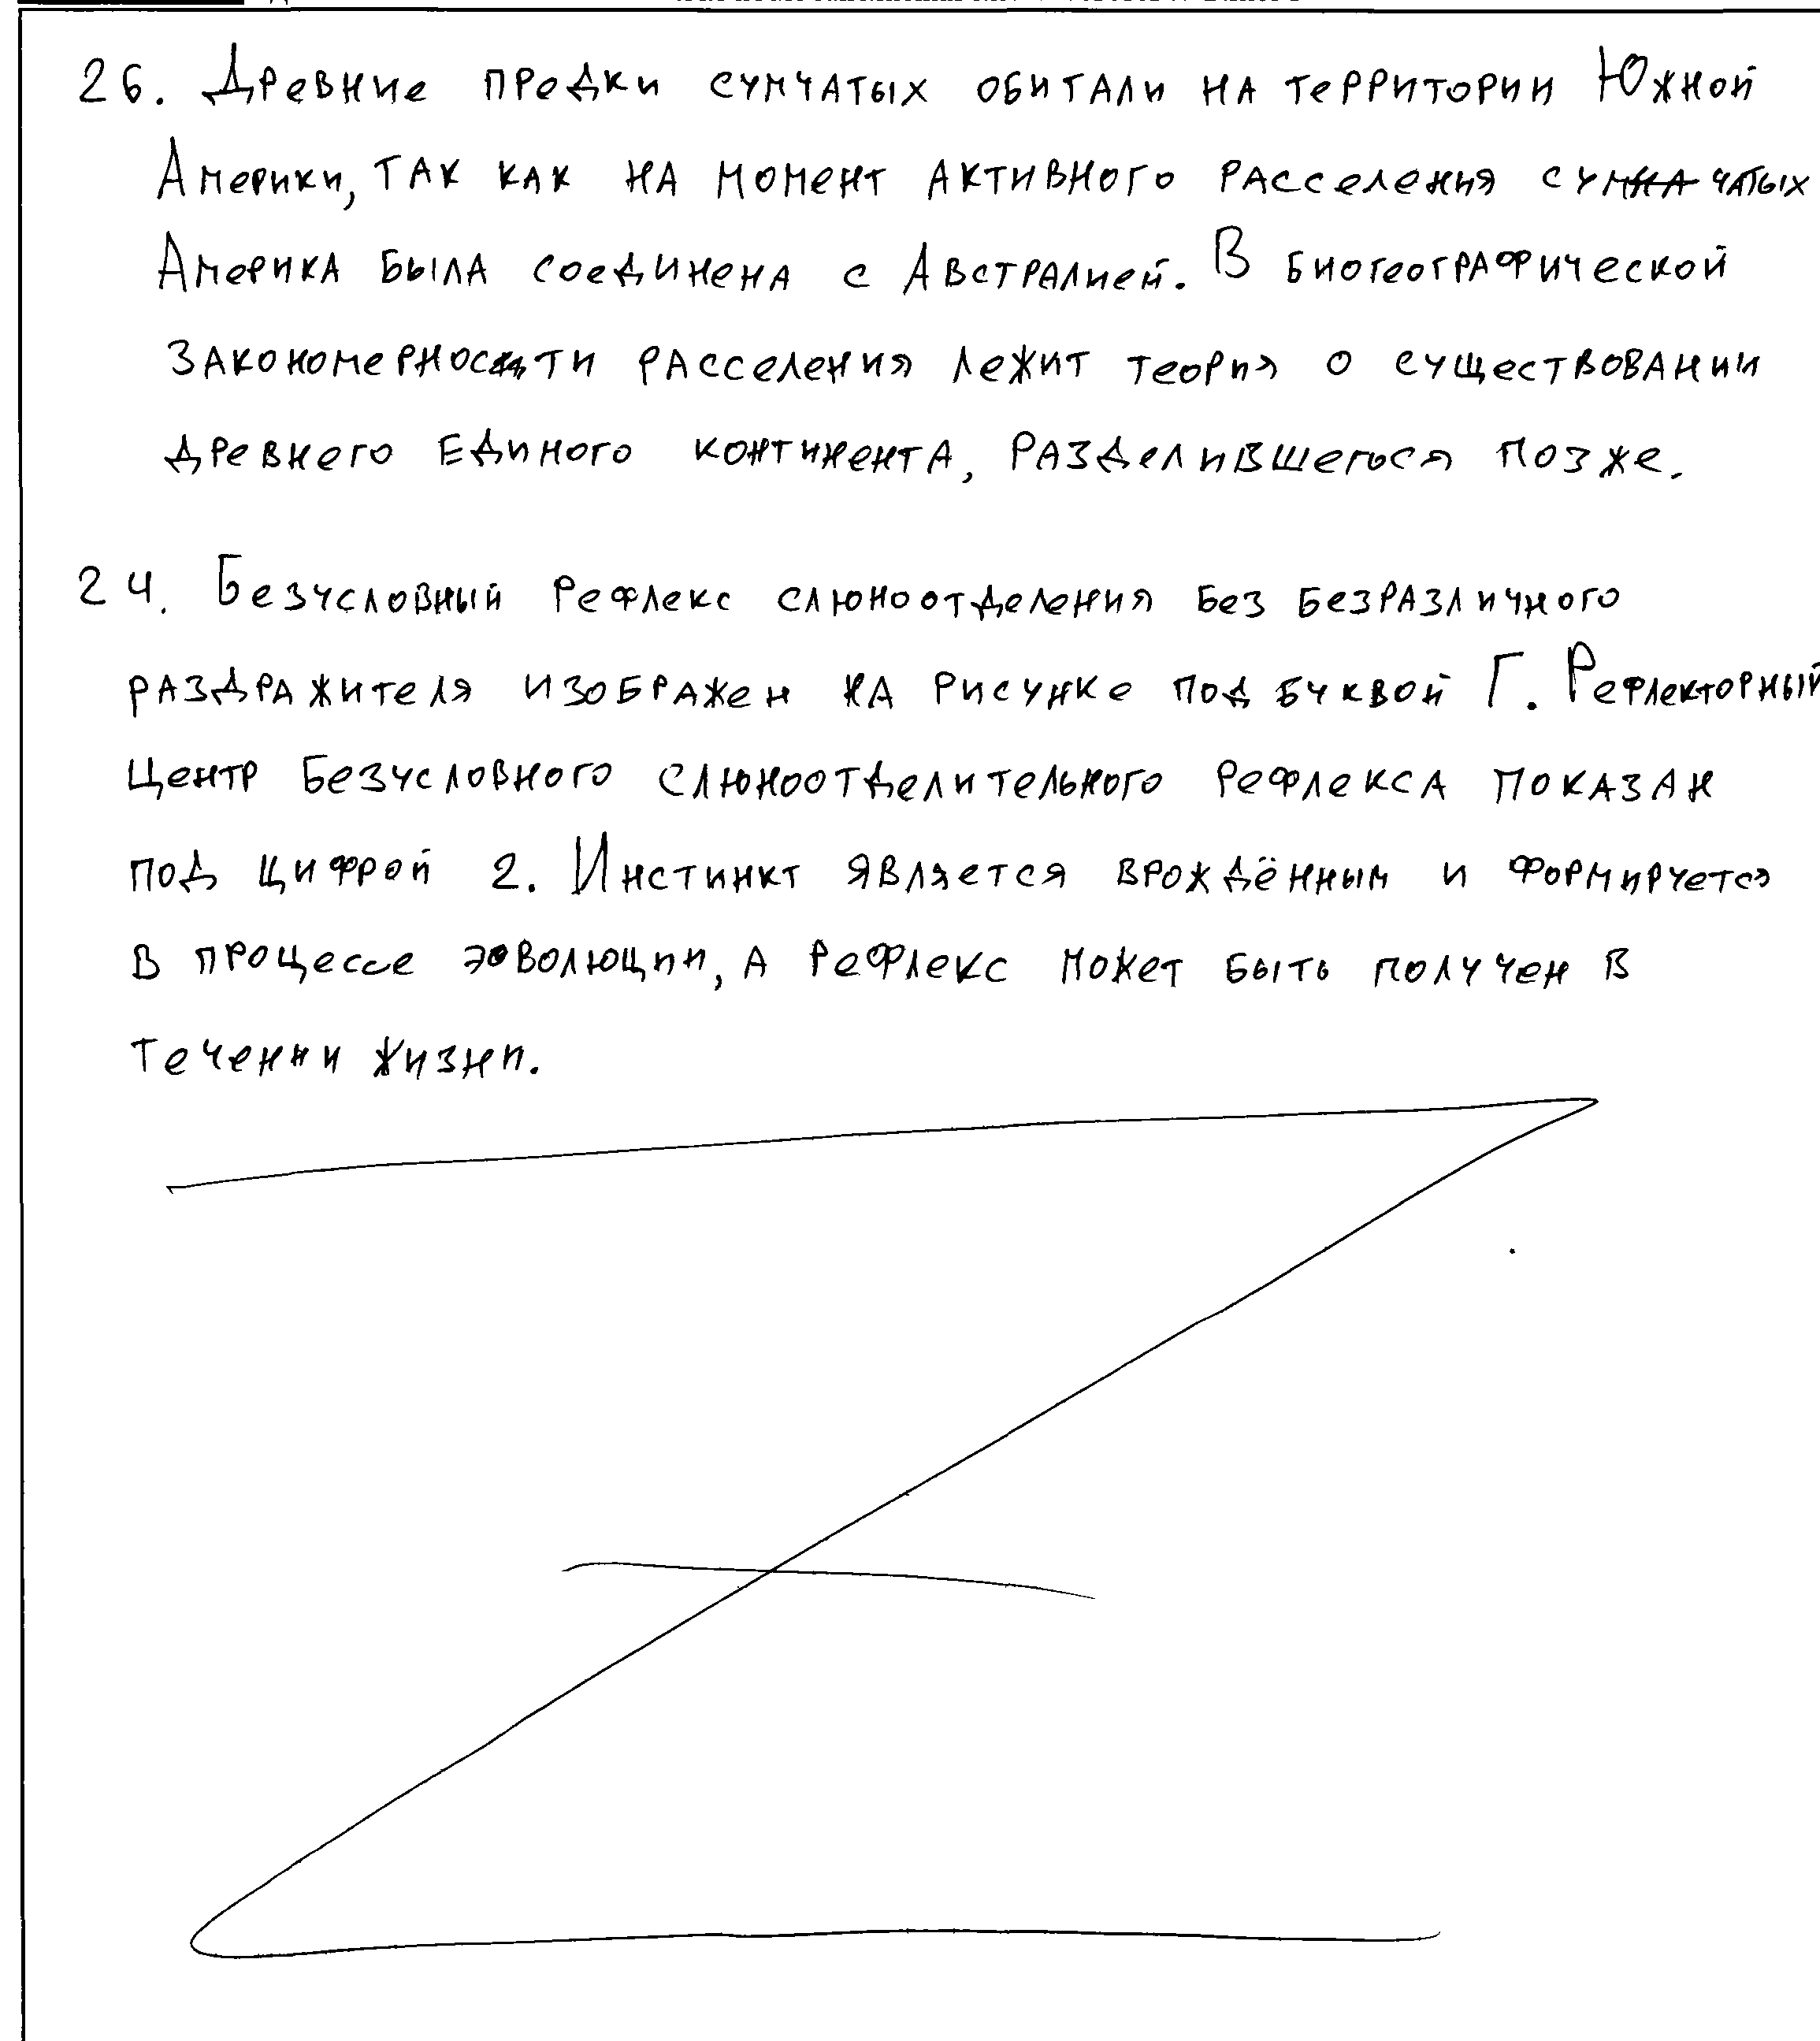 26. Древние предки сумчатых обитали на территории Южной
Америки, так как на момент активного расселения сумчатых
Америка была соединена с Австралией. В биогеографической
закономерности расселения лежит теория о существовании
древнего единого континента, разделившегося позже.
24. Безусловный рефлекс слюноотделения без безразличного
раздражителя изображен на рисунке под буквой Г. Рефлекторный
центр безусловного слюноотделительного рефлекса показан
под цифрой 2. Инстинкт является врождённым и формируется
в процессе эволюции, а рефлекс может быть получен в
течении жизни.